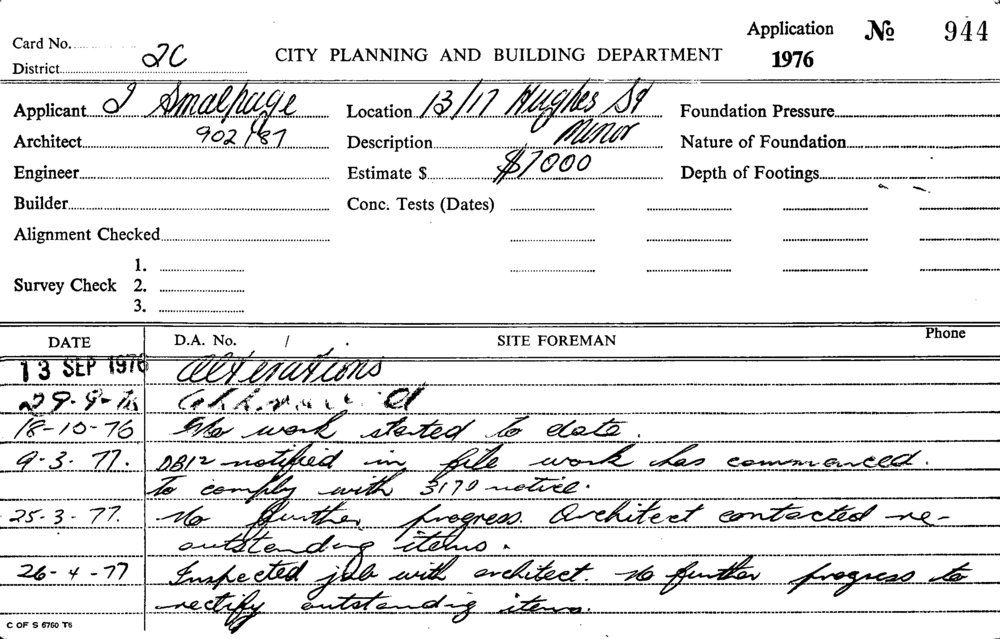 Card No.
District 2C
CITY PLANNING AND BUILDING DEPARTMENT
Application No 944
1976
Applicant J Smalpage
Location 13/17 Hughes St
Foundation Pressure
Architect 902787
Description Minor
Nature of Foundation
Engineer
Estimate $ $7000
Depth of Footings
Builder
Conc. Tests (Dates)
Alignment Checked
1.
Survey Check 2.
3.
DATE D.A. No. / . SITE FOREMAN Phone
13 SEP 1976 Alterations
29-9-76
18-10-76 No work started to date.
9-3-77. DB12 notified in file work has commenced.
to comply with 317D notice.
25-3-77. No further progress. Architect contacted re-
outstanding items.
26-4-77 Inspected job with architect. No further progress to
rectify outstanding items.
C OF S 6760 T6